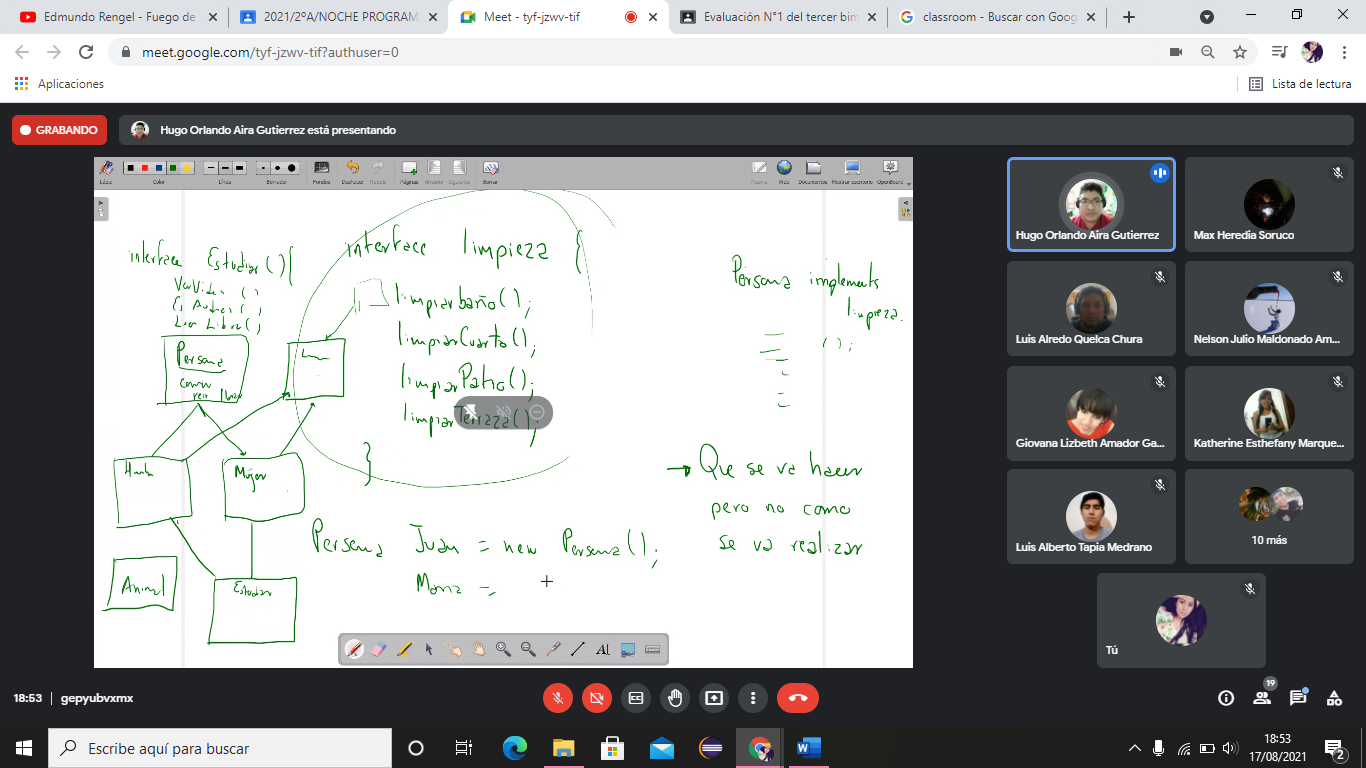 Edmundo Rengel - Fuego de
2021/2ºA/NOCHE PROGRAM
Meet - tyf-jzwv-tif
Evaluación N°1 del tercer bim
classroom - Buscar con Goog
meet.google.com/tyf-jzwv-tif?authuser=0
Aplicaciones
Lista de lectura
GRABANDO
Hugo Orlando Aira Gutierrez está presentando
Lápiz
Color
Línea
Borrador
Fondos
Deshacer
Repetir
Páginas
Anterior
Siguiente
Borrar
Pizarra
Web
Documentos
Mostrar escritorio
OpenBoard
interface Estudiar () {
VerVideo ()
Leer Libro();
interface limpieza {
limpiarbaño();
limpiarCuarto();
limpiarPatio();
limpiarTerraza();
}
Persona implements
limpieza.
();
Persona
comer
reir
Mujer
Animal
Estudiar
Persona Juan = new Persona();
Maria =
Que se va hacer
pero no como
se va realizar
Hugo Orlando Aira Gutierrez
Max Heredia Soruco
Luis Alredo Quelca Chura
Nelson Julio Maldonado Am...
Giovana Lizbeth Amador Ga...
Katherine Esthefany Marque...
Luis Alberto Tapia Medrano
10 más
Tú
18:53 | gepyubvxmx
19
Escribe aquí para buscar
18:53
17/08/2021
2